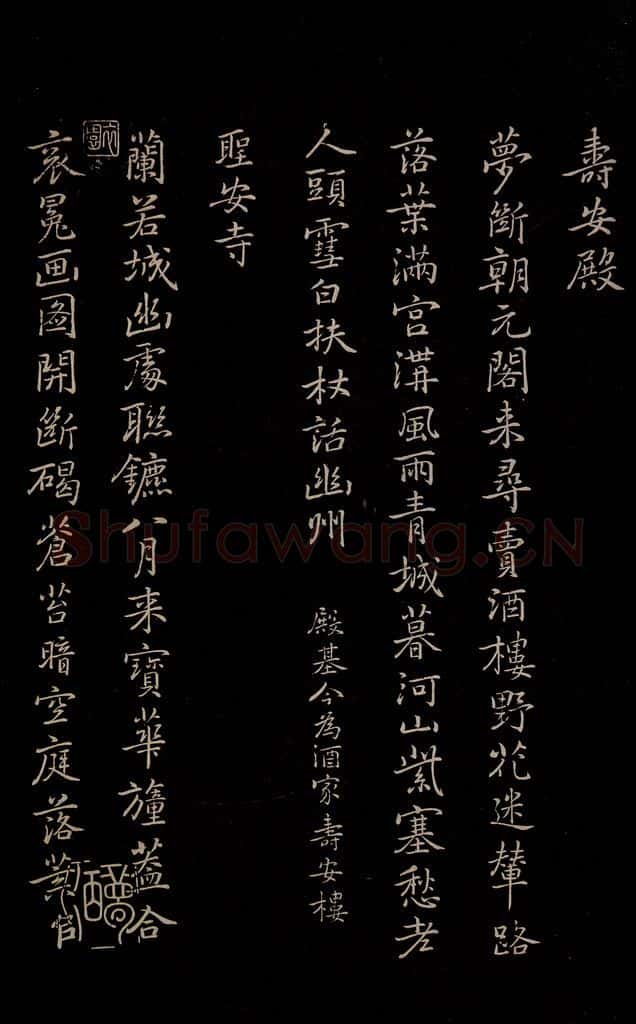 壽安殿
夢斷朝元閣来尋賣酒樓野花迷輦路
落葉滿宫溝風雨青城暮河山紫塞愁老
人頭雪白扶杖話幽州 殿基今為酒家壽安樓
聖安寺
蘭若城幽處聯鑣八月来寶華蓋合
衮冕画図開斷碣蒼苔暗空庭落葉
Shufawang.CN